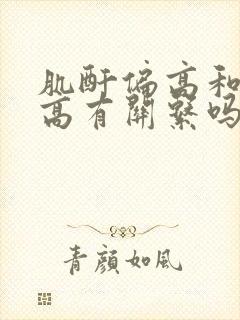 肌酐偏高和
高有關繫吗
青顔如風